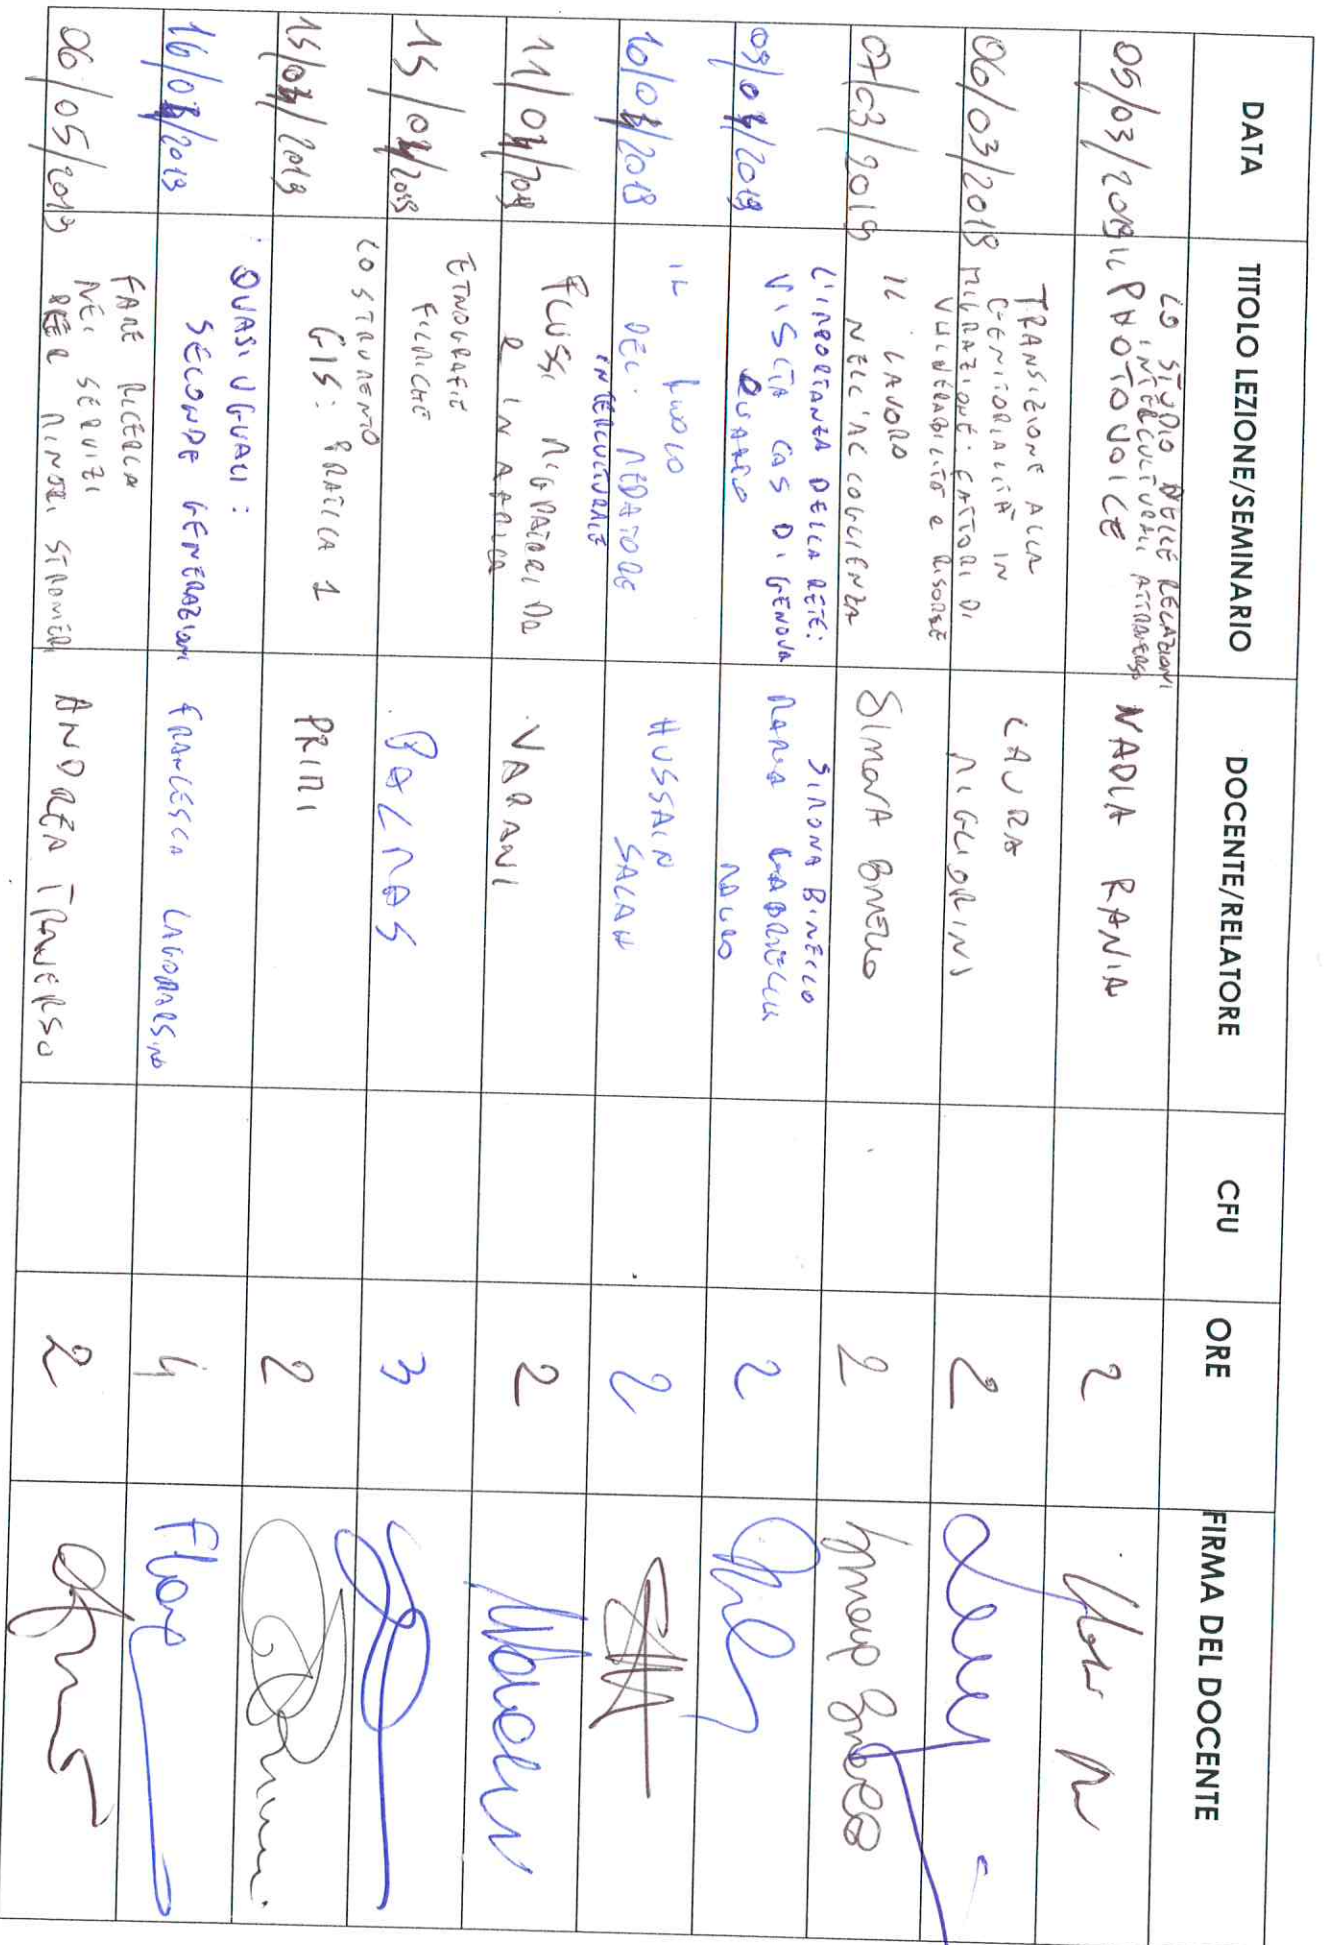 DATA TITOLO LEZIONE/SEMINARIO DOCENTE/RELATORE CFU ORE FIRMA DEL DOCENTE
05/03/2019 LO STUDIO DELLE RELAZIONI
INTERCULTURALI ATTRAVERSO
IL PHOTOVOICE NADIA RANIA 2
06/03/2019 TRANSIZIONE ALLA
GENITORIALITÀ IN
MIGRAZIONE: FATTORI DI
VULNERABILITÀ e RISORSE LAURA
MIGLIORINI 2
07/03/2019 IL LAVORO
NELL'ACCOGLIENZA SIMONA BINELLO 2
L'IMPORTANZA DELLA RETE:
VISITA CAS DI GENOVA
QUARTO SIMONA BINELLO
MARIA GABRIELLA
MAURO 2
IL RUOLO
DEL MEDIATORE
INTERCULTURALE HUSSAIN
SALAH 2
FLUSSI MIGRATORI DA
e IN AFRICA VARANI 2
ETNOGRAFIE
FILMICHE PALMAS 3
LO STRUMENTO
GIS: PRATICA 1 PRIMI 2
QUASI UGUALI:
SECONDE GENERAZIONI FRANCESCA LAGOMARSINO 4
06/05/2019 FARE RICERCA
NEI SERVIZI
PER MINORI STRANIERI ANDREA TRAVERSO 2